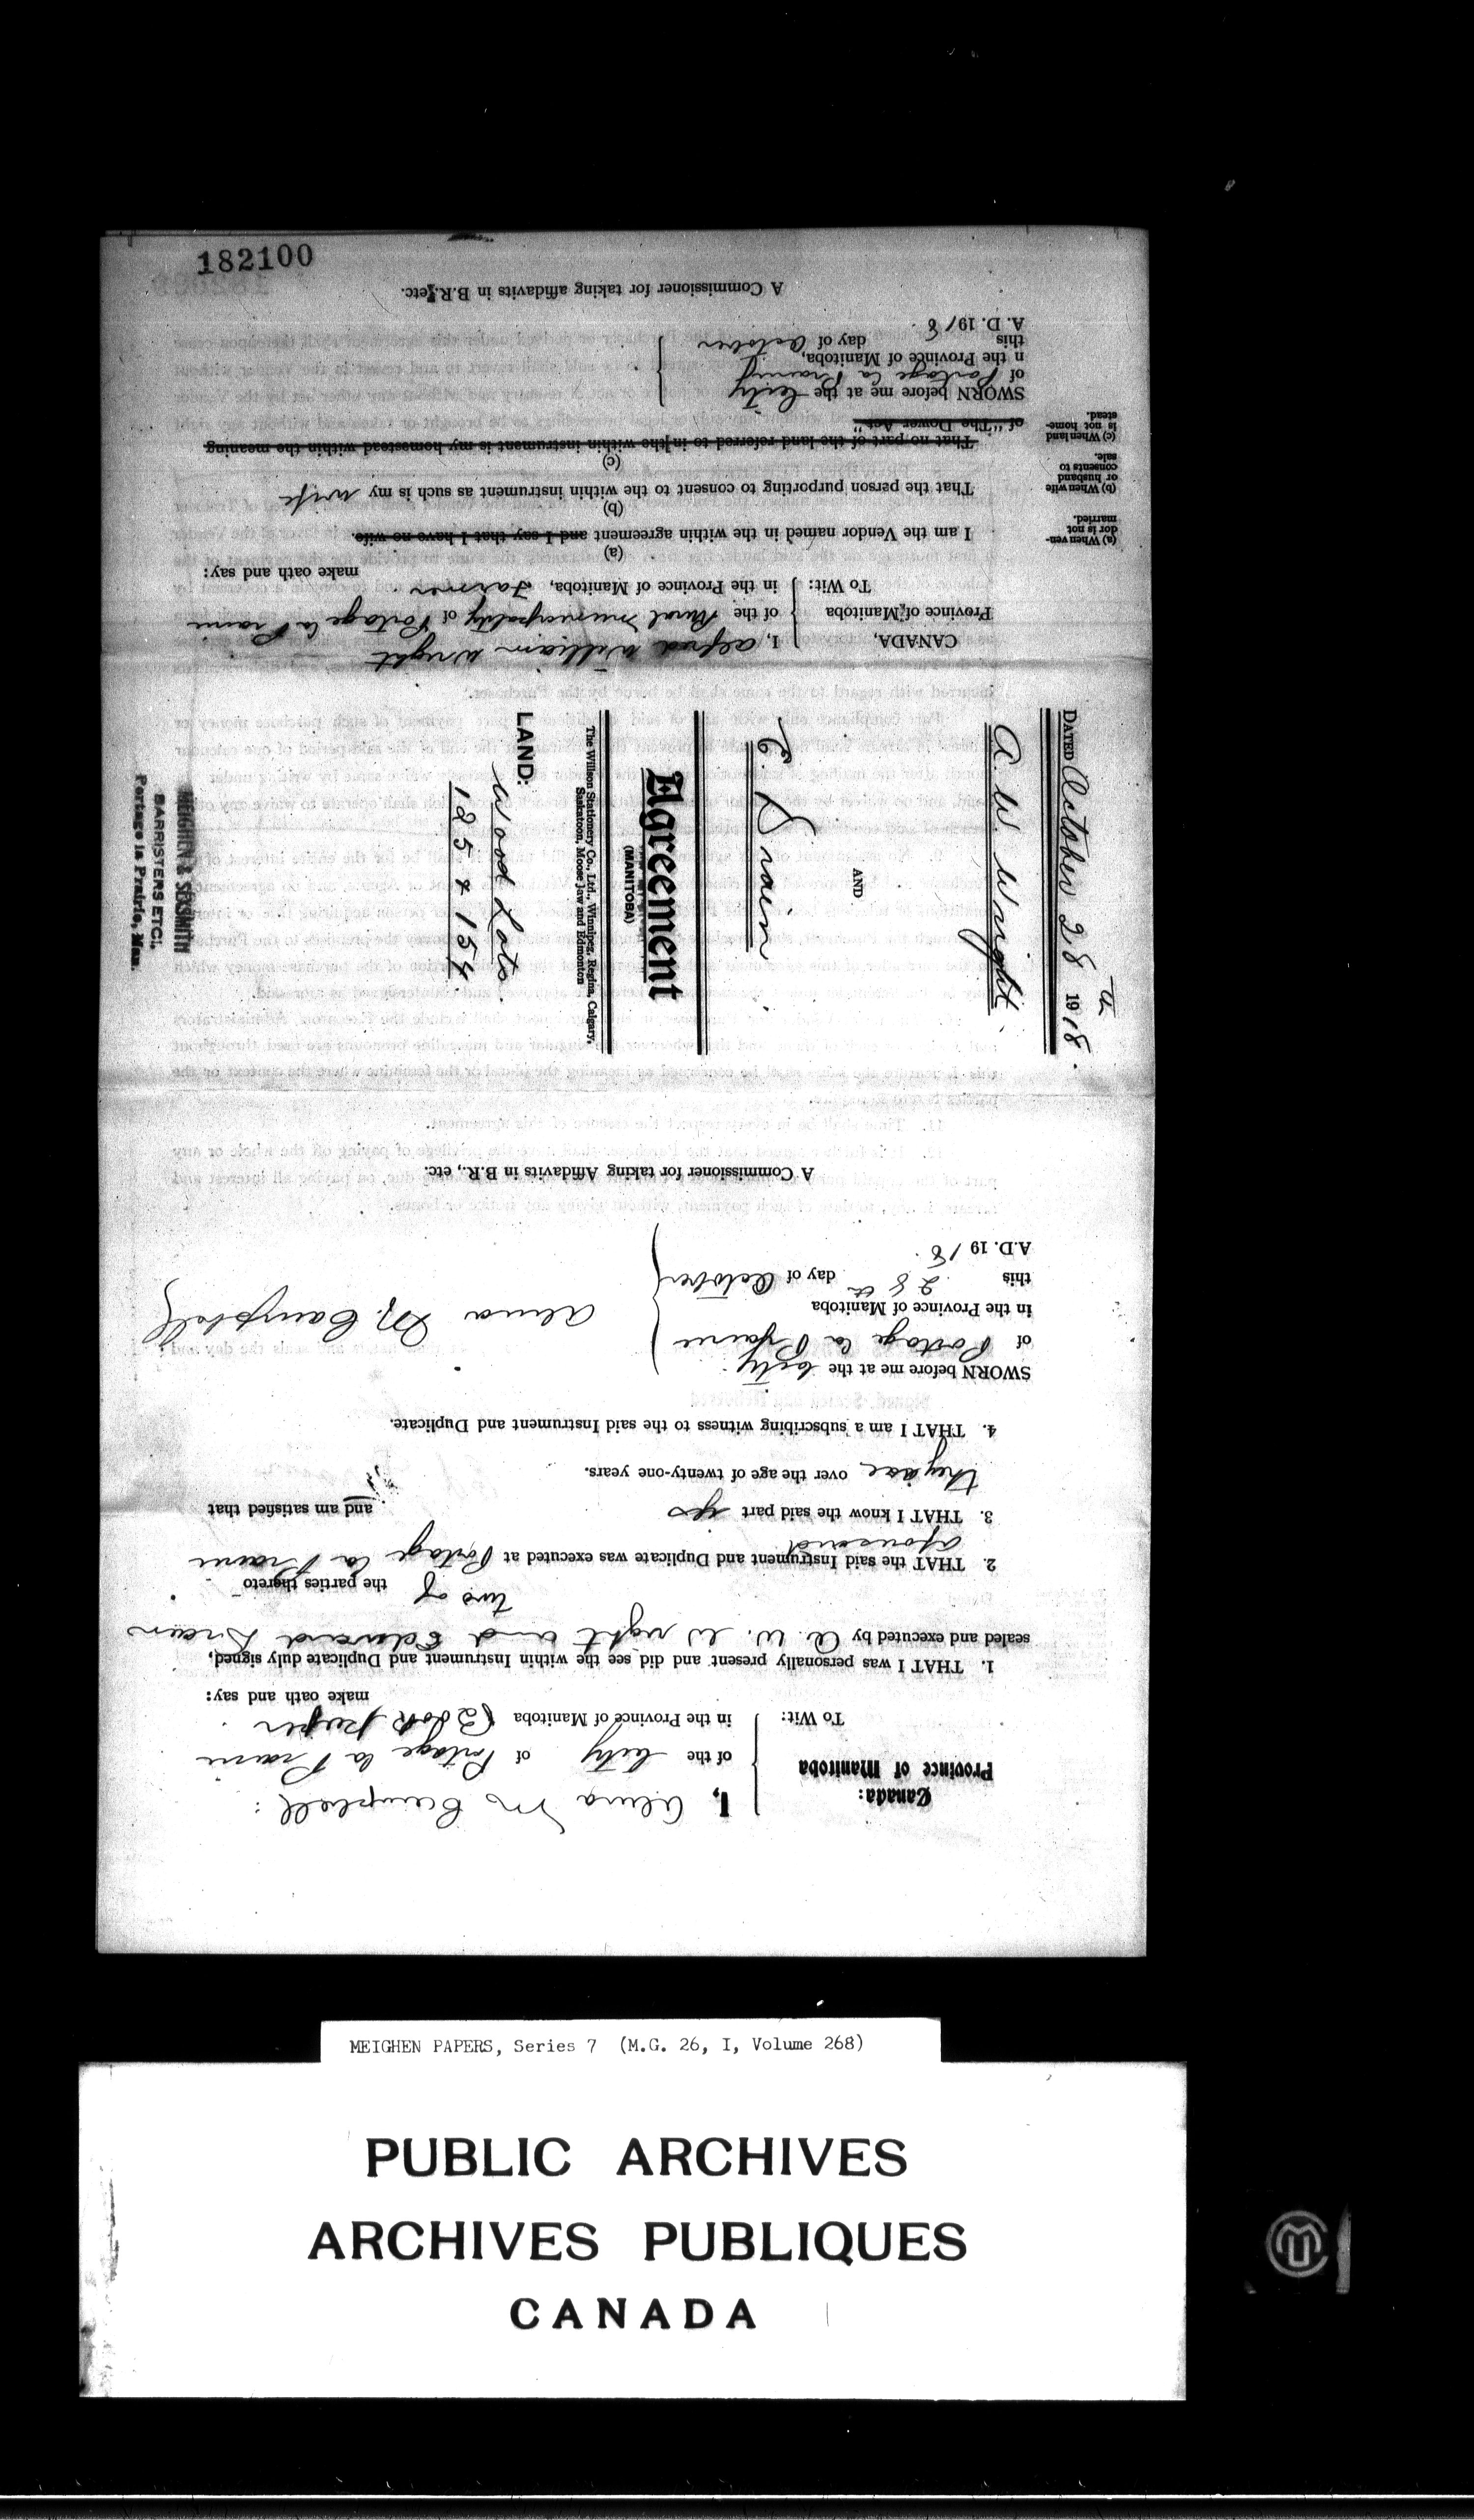 Canada:
Province of Manitoba
To Wit:
I, Alma M Campbell
of the City of Portage la Prairie
in the Province of Manitoba Book keeper
make oath and say:
1. THAT I was personally present and did see the within Instrument and Duplicate duly signed,
sealed and executed by A. W. Wright and Edward Drain
two of the parties thereto
2. THAT the said Instrument and Duplicate was executed at Portage la Prairie
aforesaid
3. THAT I know the said part ies and am satisfied that
they are over the age of twenty-one years.
4. THAT I am a subscribing witness to the said Instrument and Duplicate.
SWORN before me at the City
of Portage la Prairie
in the Province of Manitoba
this 28th day of October
A.D. 1918.
Alma M. Campbell
A Commissioner for taking Affidavits in B.R., etc.
DATED October 28th 1918.
A. W. Wright.
AND
E. Drain.
Agreement
(MANITOBA)
The Willson Stationery Co., Ltd., Winnipeg, Regina, Calgary,
Saskatoon, Moose Jaw and Edmonton
LAND:
Wood Lots.
125 & 154.
MEIGHEN & SEXSMITH
BARRISTERS ETC.,
Portage la Prairie, Man.
CANADA,
Province of Manitoba
To Wit:
I, Alfred William Wright
of the Rural Municipality of Portage la Prairie
in the Province of Manitoba, Farmer.
make oath and say:
(a)
(a) When ven-
dor is not
married.
I am the Vendor named in the within agreement and I say that I have no wife.
(b)
(b) When wife
or husband
consents to
sale.
That the person purporting to consent to the within instrument as such is my wife
(c)
(c) When land
is not home-
stead.
That no part of the land referred to in the within instrument is my homestead within the meaning
of "The Dower Act"
SWORN before me at the City
of Portage la Prairie
n the Province of Manitoba,
this day of October
A. D. 1918.
A Commissioner for taking affidavits in B.R., etc.
182100
MEIGHEN PAPERS, Series 7 (M.G. 26, I, Volume 268)
PUBLIC ARCHIVES
ARCHIVES PUBLIQUES
CANADA